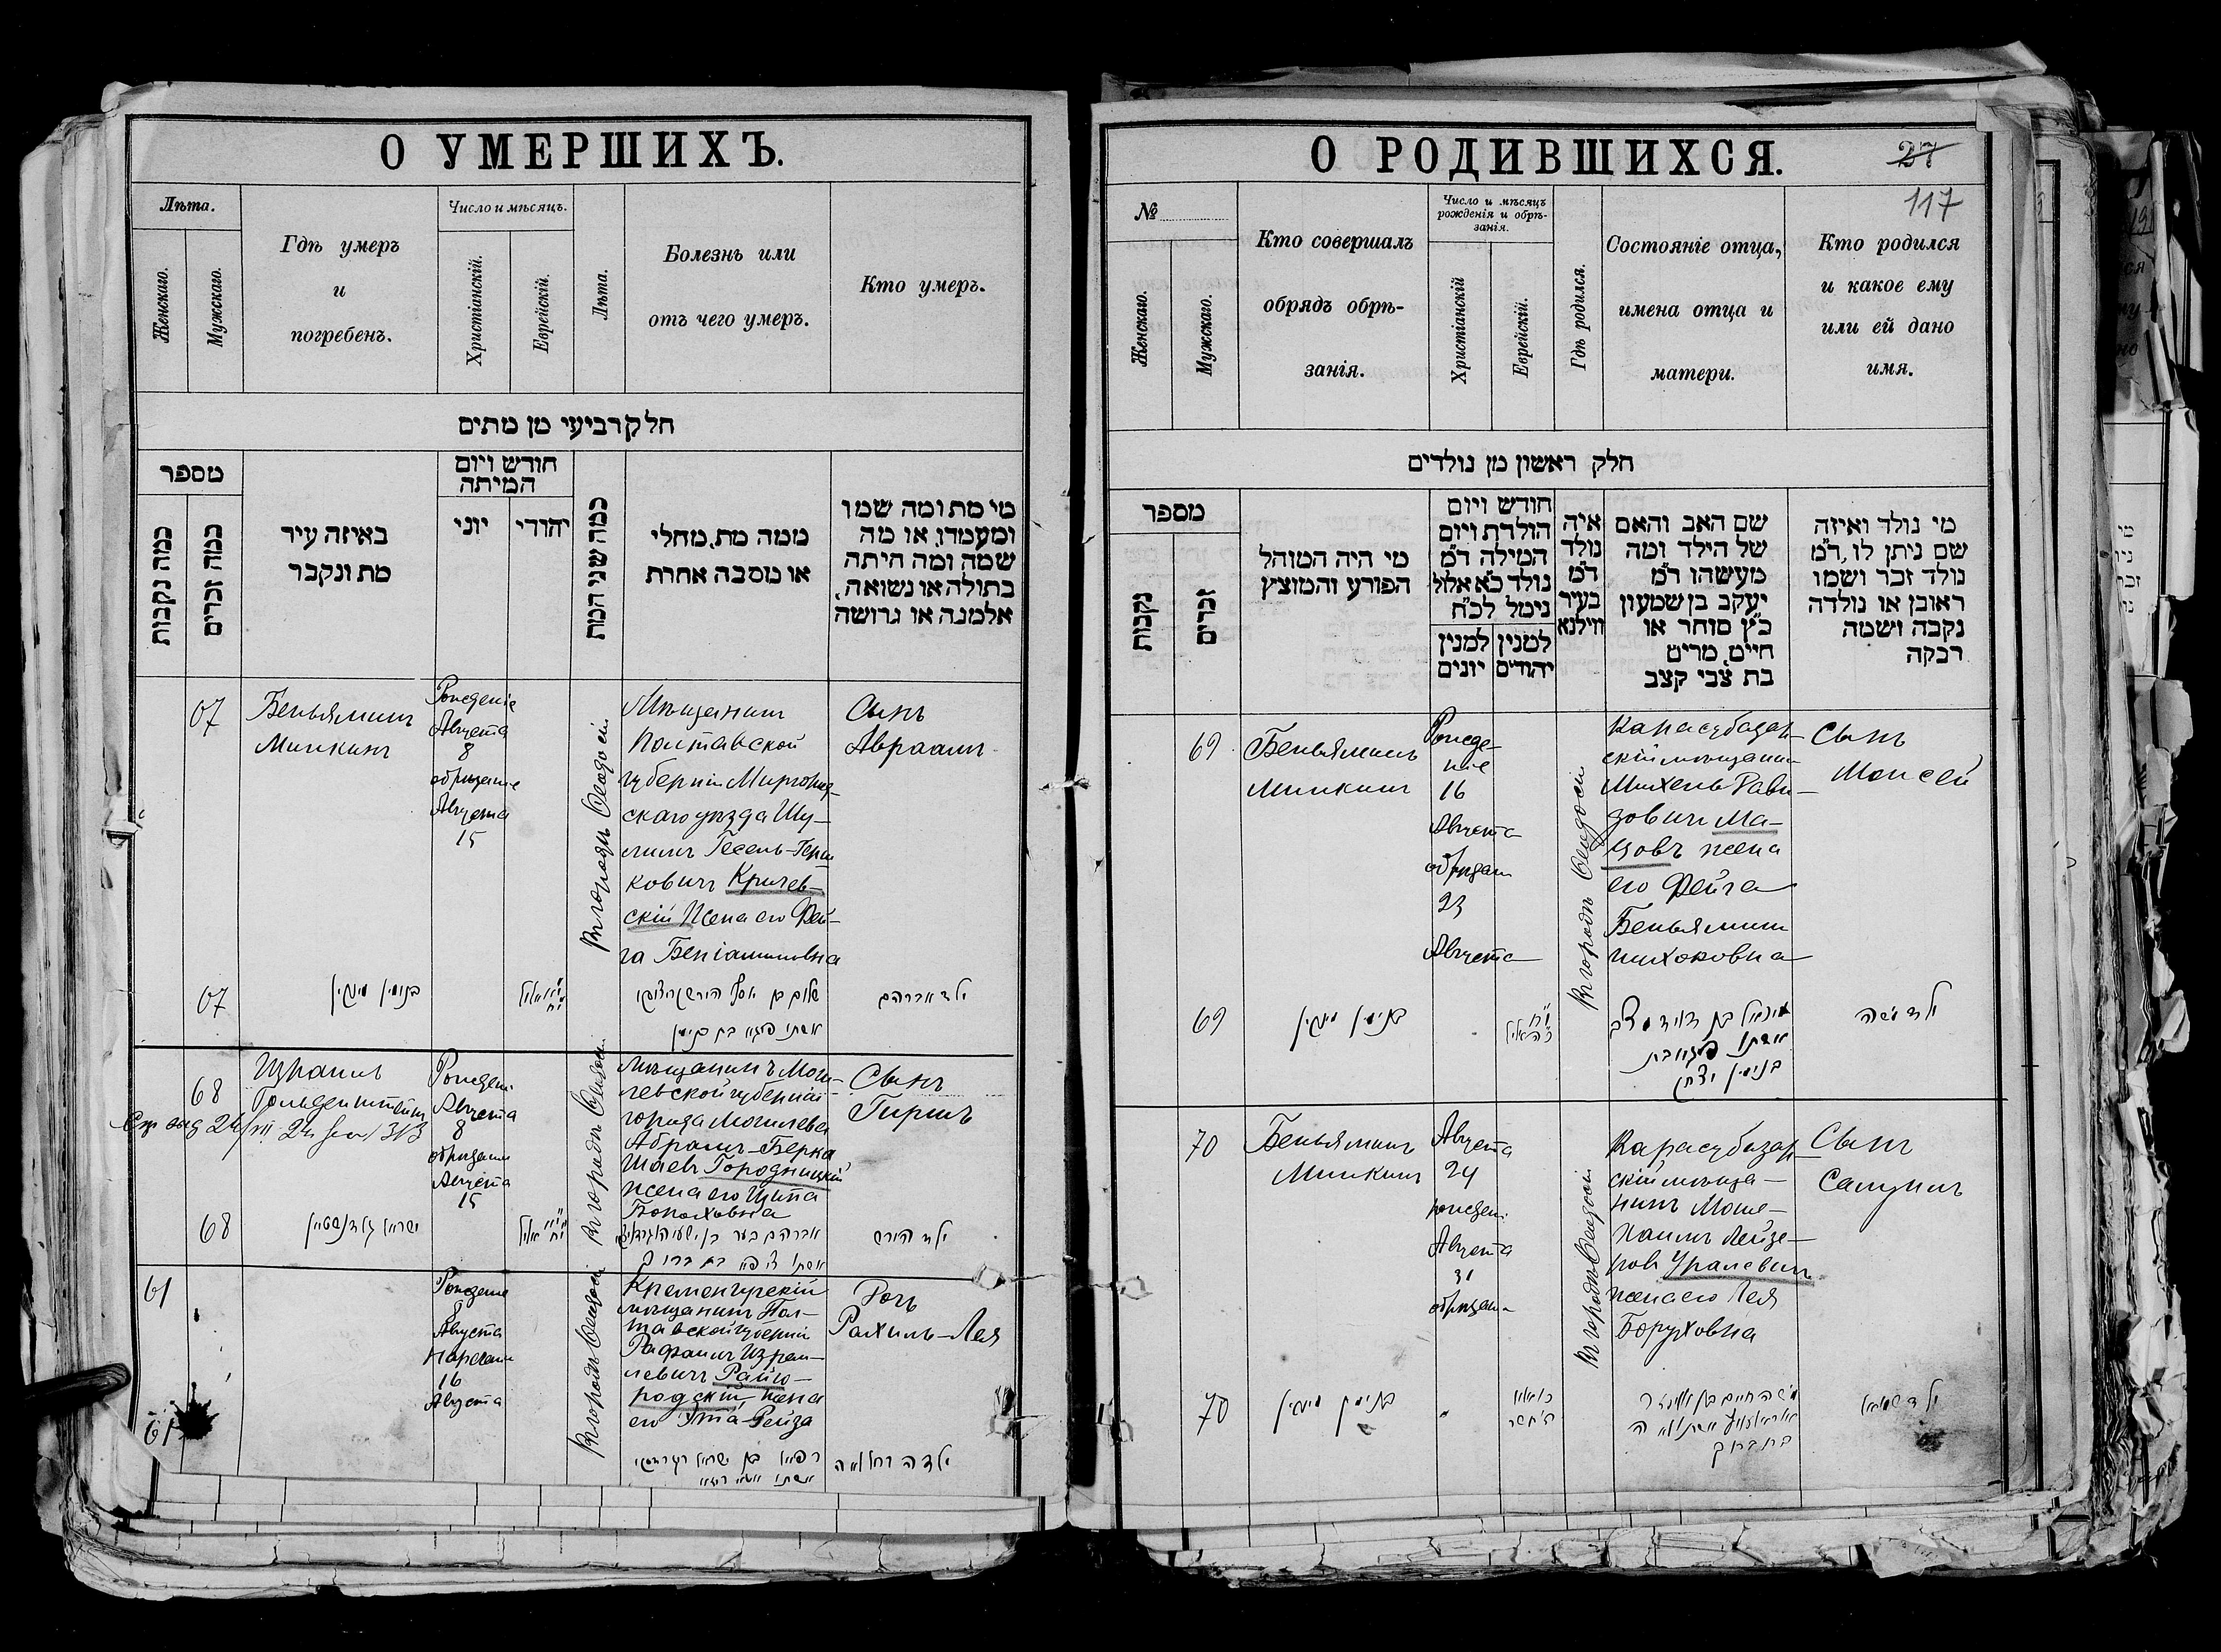 О УМЕРШИХЪ.
Лѣта.
Женскаго.
Мужскаго.
Гдѣ умеръ
и
погребенъ.
Число и мѣсяцъ.
Христіанскій.
Еврейскій.
Лѣта.
Болезнь или
отъ чего умеръ.
Кто умеръ.
חלק רביעי מן מתים
מספר
כמה נקבות
כמה זכרים
באיזה עיר
מת ונקבר
חודש ויום
המיתה
יוני
יהודי
כמה שני המת
ממה מת, מחלי
או מסבה אחרת
מי מת ומה שמו
ומעמדו, או מה
שמה ומה היתה
בתולה או נשואה,
אלמנה או גרושה
67
Беньяминъ
Минкинъ
Рожденіе
Августа
8
обрезание
Августа
15
въ городѣ Ѳеодосіи
Мѣщанинъ
Полтавской
губерніи Миргород-
скаго уѣзда Шу-
лимъ Іесель-Герш
ковичъ Кричев-
скій Жена его Фей-
га Беніаминовна
Сынъ
Авраамъ
67
בנימין מינקין
אשתו פייגא בת בנימין
ילד אברהם
68
Израиль
Гольденштейнъ
Августа
8
Августа
15
въ городѣ Ѳеодосіи
Мѣщанинъ Моги-
левской губерніи
города Могилева
Абрамъ-Берка
Шаевъ Городницкій
жена его Ципа
Сынъ
Гиршъ
68
ישראל גולדנשטיין
ילד הירש
61
Рожденіе
8
Августа
наречени
16
Августа
въ городѣ Ѳеодосіи
Кременчугскій
мѣщанинъ Пол-
тавской губерніи
Рафаилъ Израи-
левичъ Райго-
родскій, жена
его Эта-Рейза
Дочь
Рахиль-Лея
61
ילדה רחל לאה
О РОДИВШИХСЯ.
27
117
№
Женскаго.
Мужскаго.
Кто совершалъ
обрядъ обрѣ-
занія.
Число и мѣсяцъ
рожденія и обрѣ-
занія.
Христіанскій
Еврейскій.
Гдѣ родился.
Состояніе отца,
имена отца и
матери.
Кто родился
и какое ему
или ей дано
имя.
חלק ראשון מן נולדים
מספר
נקבות
זכרים
מי היה המוהל
הפורע והמוצץ
חודש ויום
הולדת ויום
המילה ד״מ
נולד כ״א אלול
נימל לכ״ח
למנין יונים
למנין יהודים
איה
נולד
ד״מ
בעיר
ווילנא
שם האב והאם
של הילד ומה
מעשהו ד״מ
יעקב בן שמעון
כ״ץ סוחר או
חייט, מרים
בת צבי קצב
מי נולד ואיזה
שם ניתן לו, ד״מ
נולד זכר ושמו
ראובן או נולדה
נקבה ושמה
רבקה
69
Беньяминъ
Минкинъ
Рожде-
ние
16
Августа
обрезани
23
Августа
въ городѣ Ѳеодосіи
Карасубазар-
скій мѣщанинъ
Михель Дави-
довичъ Ма-
зовъ жена
его Фейга
Беньямин
Сынъ
Моисей
69
בנימין מינקין
אשתו פייגא בת
ילד משה
70
Беньяминъ
Минкинъ
Августа
24
рожден.
Августа
31
обрезани
въ городѣ Ѳеодосіи
Карасубазар-
скій мѣща-
нинъ Мош-
Хаимъ Лейзе-
ровъ Уралевичъ
жена его Лея
Боруховна
Сынъ
Самуилъ
70
בנימין מינקין
בת ברוך
ילד שמואל